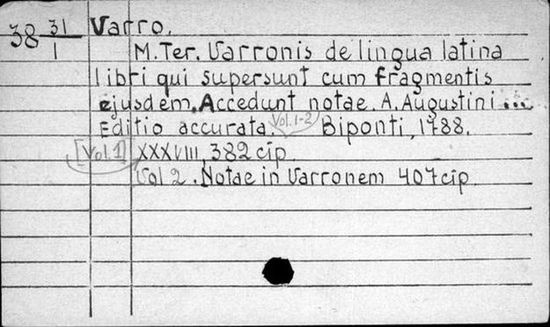 38 31/1 Varro.
M. Ter. Varronis de lingua latina
libri qui supersunt cum fragmentis
ejusdem. Accedunt notae. A. Augustini ...
Editio accurata. Vol. 1-2 Biponti, 1788.
[Vol. 1] XXXVIII, 382 cip.
Vol 2. Notae in Varronem 407 cip.